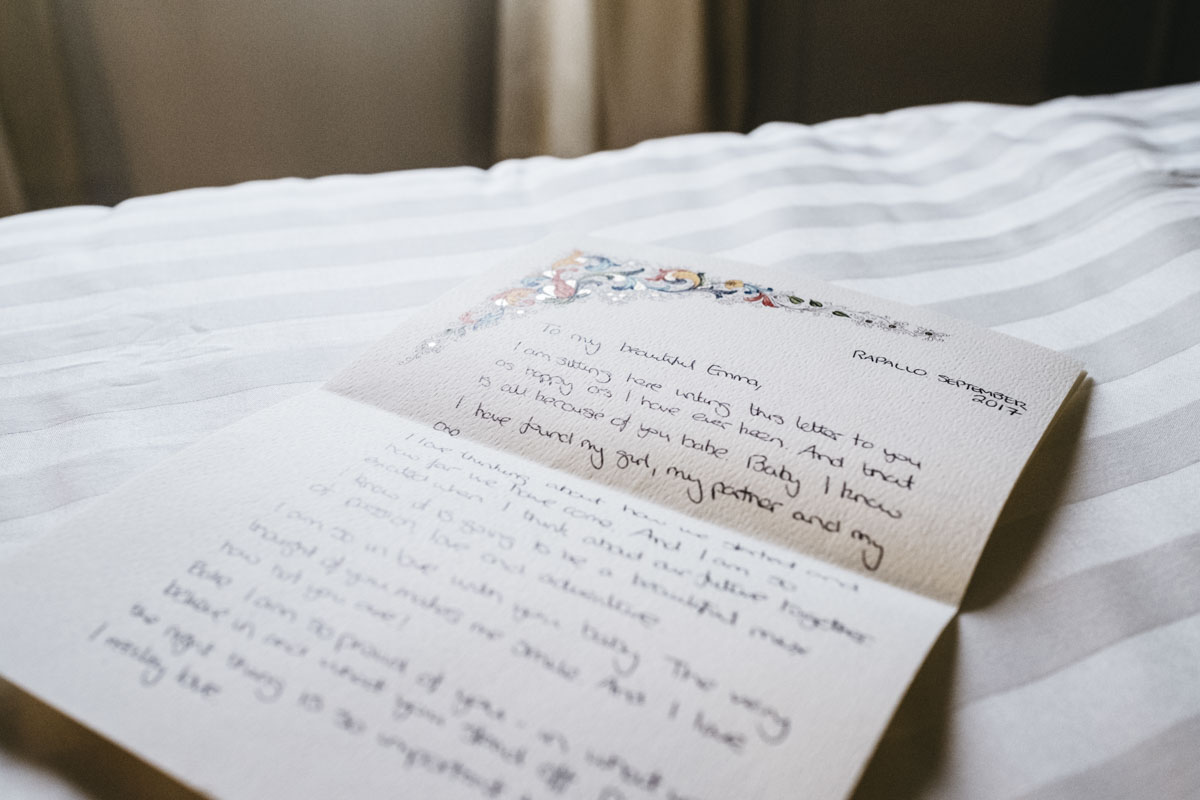 RAPALLO SEPTEMBER
2017
To my beautiful Emma,
I am sitting here writing this letter to you
as happy as I have ever been. And that
is all because of you babe Baby I know
I have found my girl, my partner and my
one
I love thinking about how we started and
how far we have come. And I am so
excited when I think about our future together
know it is going to be a beautiful
of passion, love and adventure
I am so in love with you baby The very
thought of you makes me smile And I love
how
Babe I am so proud of you - in what you
believe in and what you stand
the right thing is so important
I really love